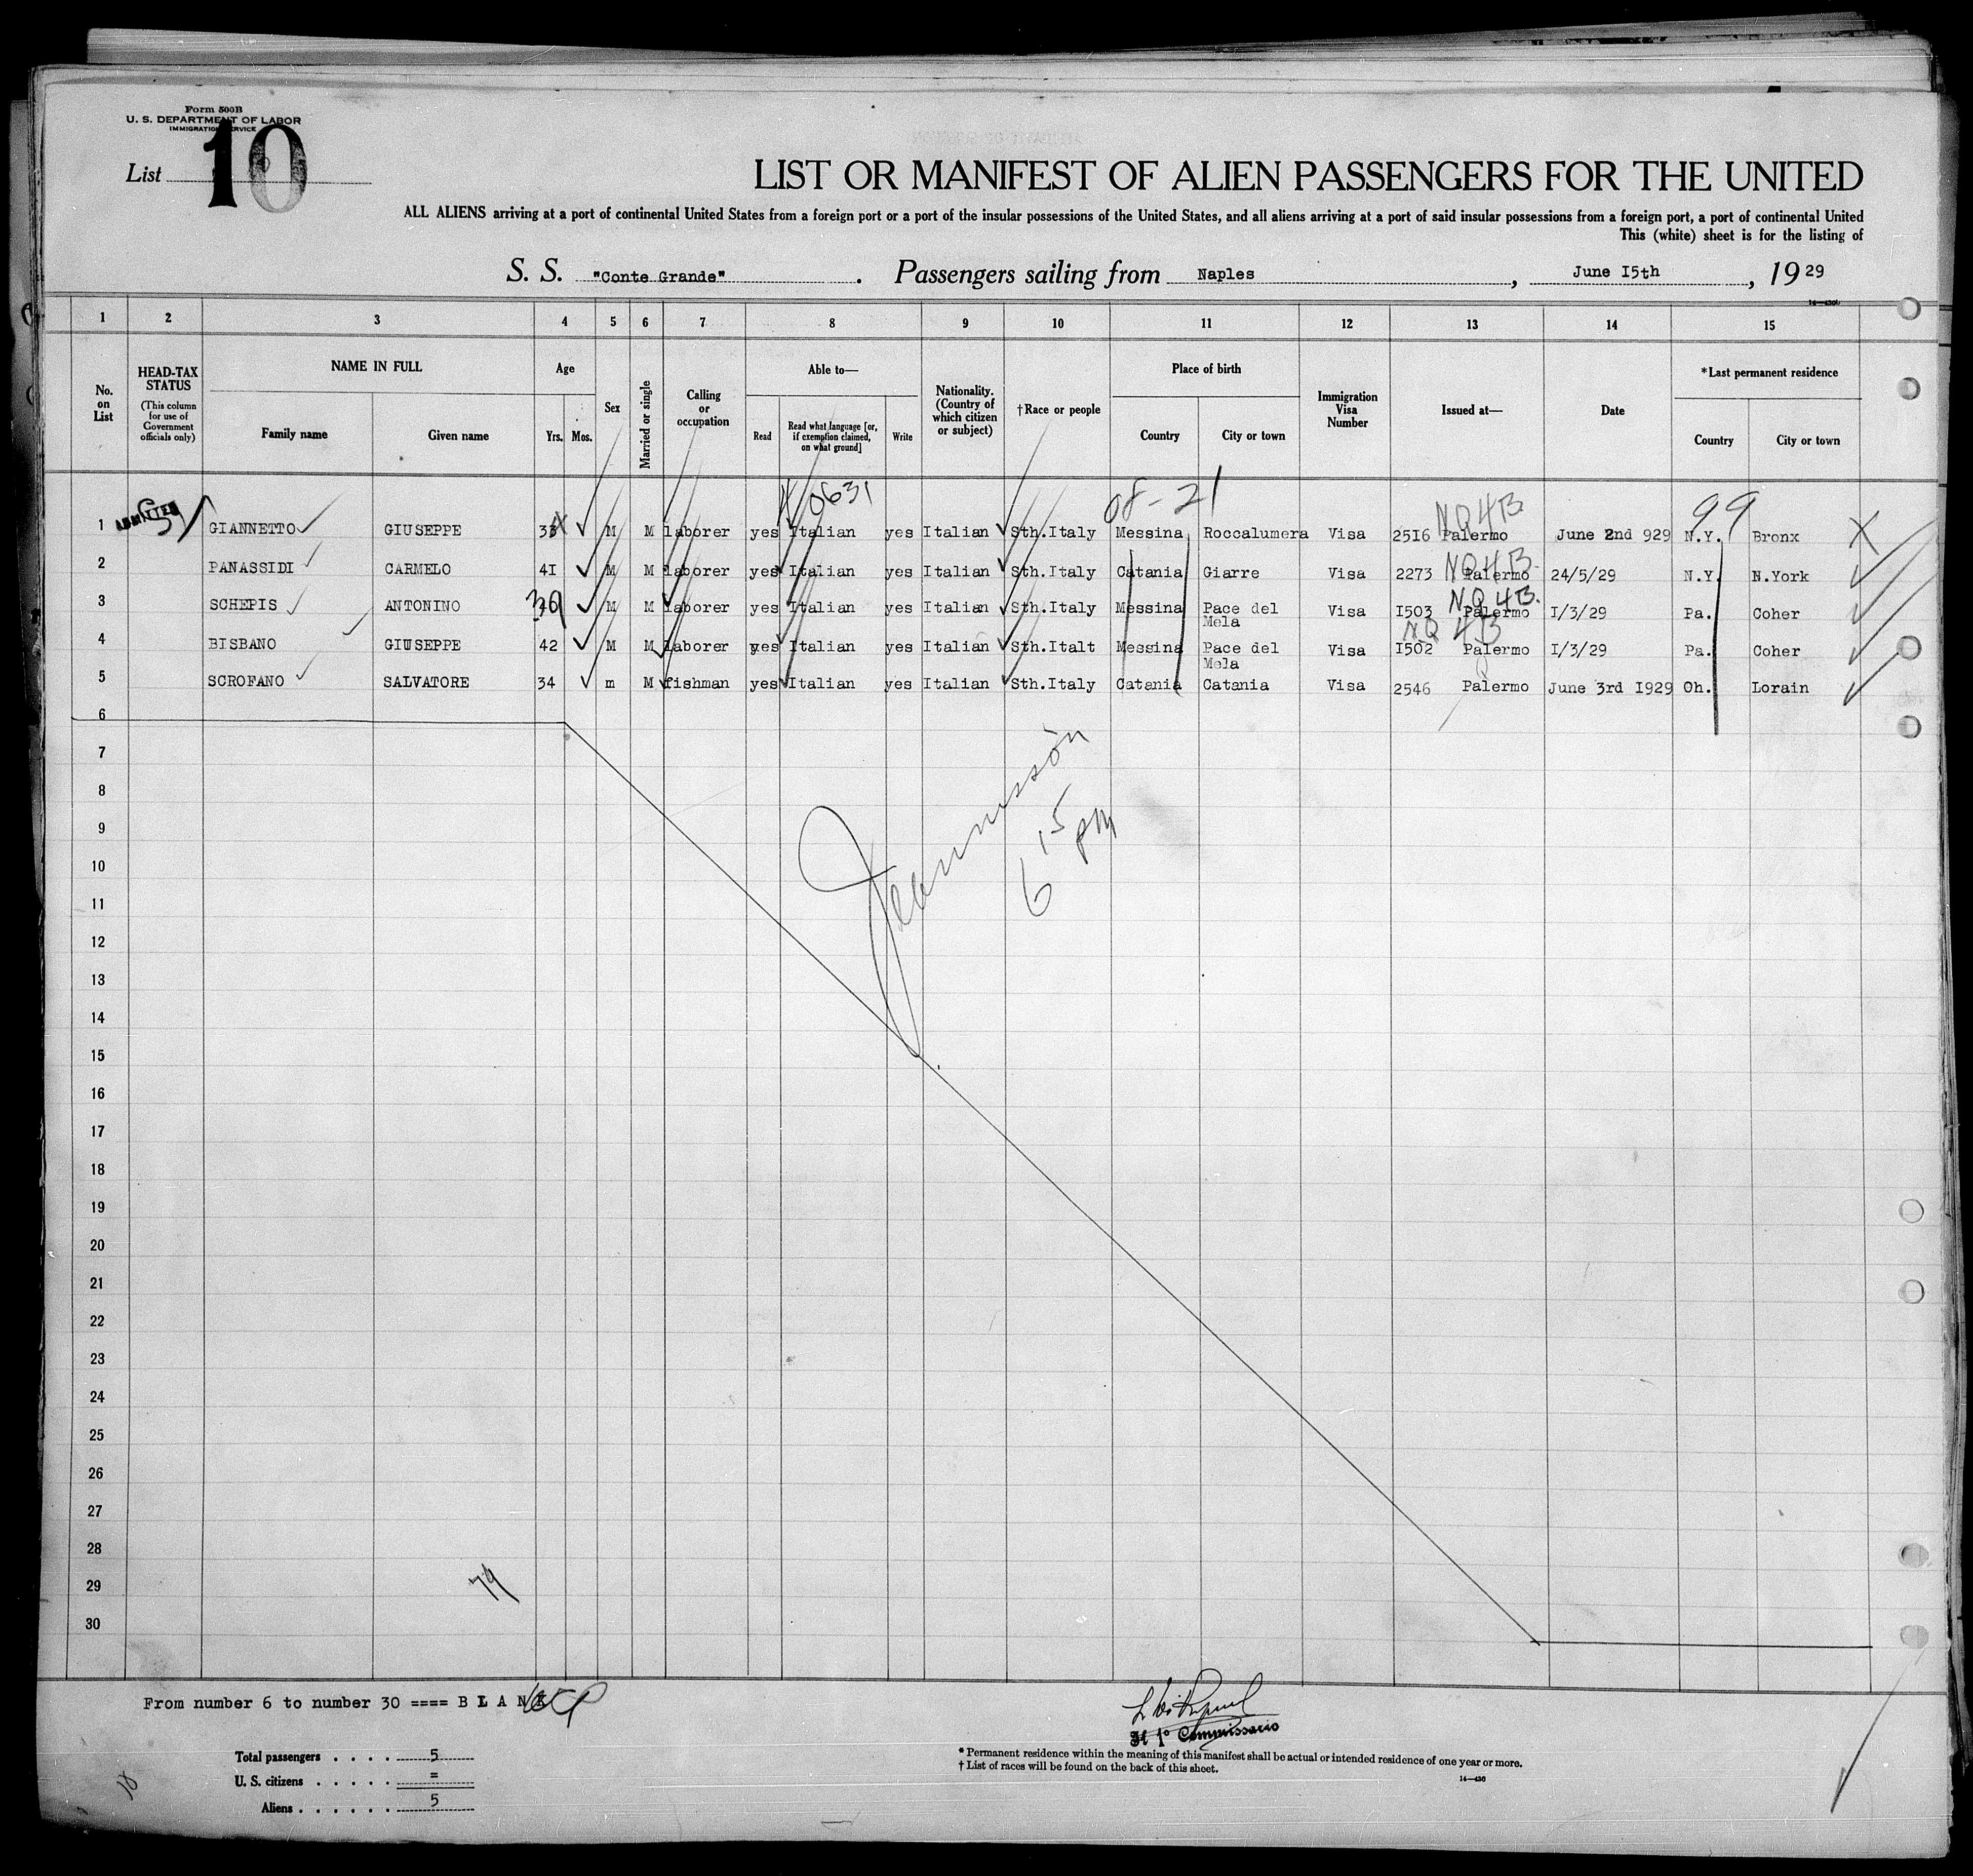 Form 500B
U. S. DEPARTMENT OF LABOR
IMMIGRATION SERVICE
List 10
LIST OR MANIFEST OF ALIEN PASSENGERS FOR THE UNITED
ALL ALIENS arriving at a port of continental United States from a foreign port or a port of the insular possessions of the United States, and all aliens arriving at a port of said insular possessions from a foreign port, a port of continental United
This (white) sheet is for the listing of
S. S. "Conte Grande". Passengers sailing from Naples, June I5th, 1929
1 2 3 4 5 6 7 8 9 10 11 12 13 14 15
No. on List
HEAD-TAX STATUS (This column for use of Government officials only)
NAME IN FULL Family name Given name
Age Yrs. Mos.
Sex
Married or single
Calling or occupation
Able to— Read Read what language [or, if exemption claimed, on what ground] Write
Nationality. (Country of which citizen or subject)
†Race or people
Place of birth Country City or town
Immigration Visa Number
Issued at—
Date
*Last permanent residence Country City or town
0631 08-21 NQ4B 99
1 ADMITTED GIANNETTO GIUSEPPE 33 M M laborer yes Italian yes Italian Sth.Italy Messina Roccalumera Visa 2516 Palermo June 2nd 929 N.Y. Bronx
NQ4B
2 PANASSIDI CARMELO 4I M M laborer yes Italian yes Italian Sth.Italy Catania Giarre Visa 2273 Palermo 24/5/29 N.Y. N.York
NQ4B.
3 SCHEPIS ANTONINO 39 M M laborer yes Italian yes Italian Sth.Italy Messina Pace del Mela Visa I503 Palermo I/3/29 Pa. Coher
NQ 4B
4 BISBANO GIUSEPPE 42 M M laborer yes Italian yes Italian Sth.Italt Messina Pace del Mela Visa I502 Palermo I/3/29 Pa. Coher
5 SCROFANO SALVATORE 34 m M fishman yes Italian yes Italian Sth.Italy Catania Catania Visa 2546 Palermo June 3rd I929 Oh. Lorain
6
7
8
9
10
11
12
13
14
15
16
17
18
19
20
21
22
23
24
25
26
27
28
29
30
6 15 PM
From number 6 to number 30 ==== B L A N K
Il 1° Commissario
Total passengers . . . . 5
U. S. citizens . . . . . =
Aliens . . . . . . 5
* Permanent residence within the meaning of this manifest shall be actual or intended residence of one year or more.
† List of races will be found on the back of this sheet.
14—430